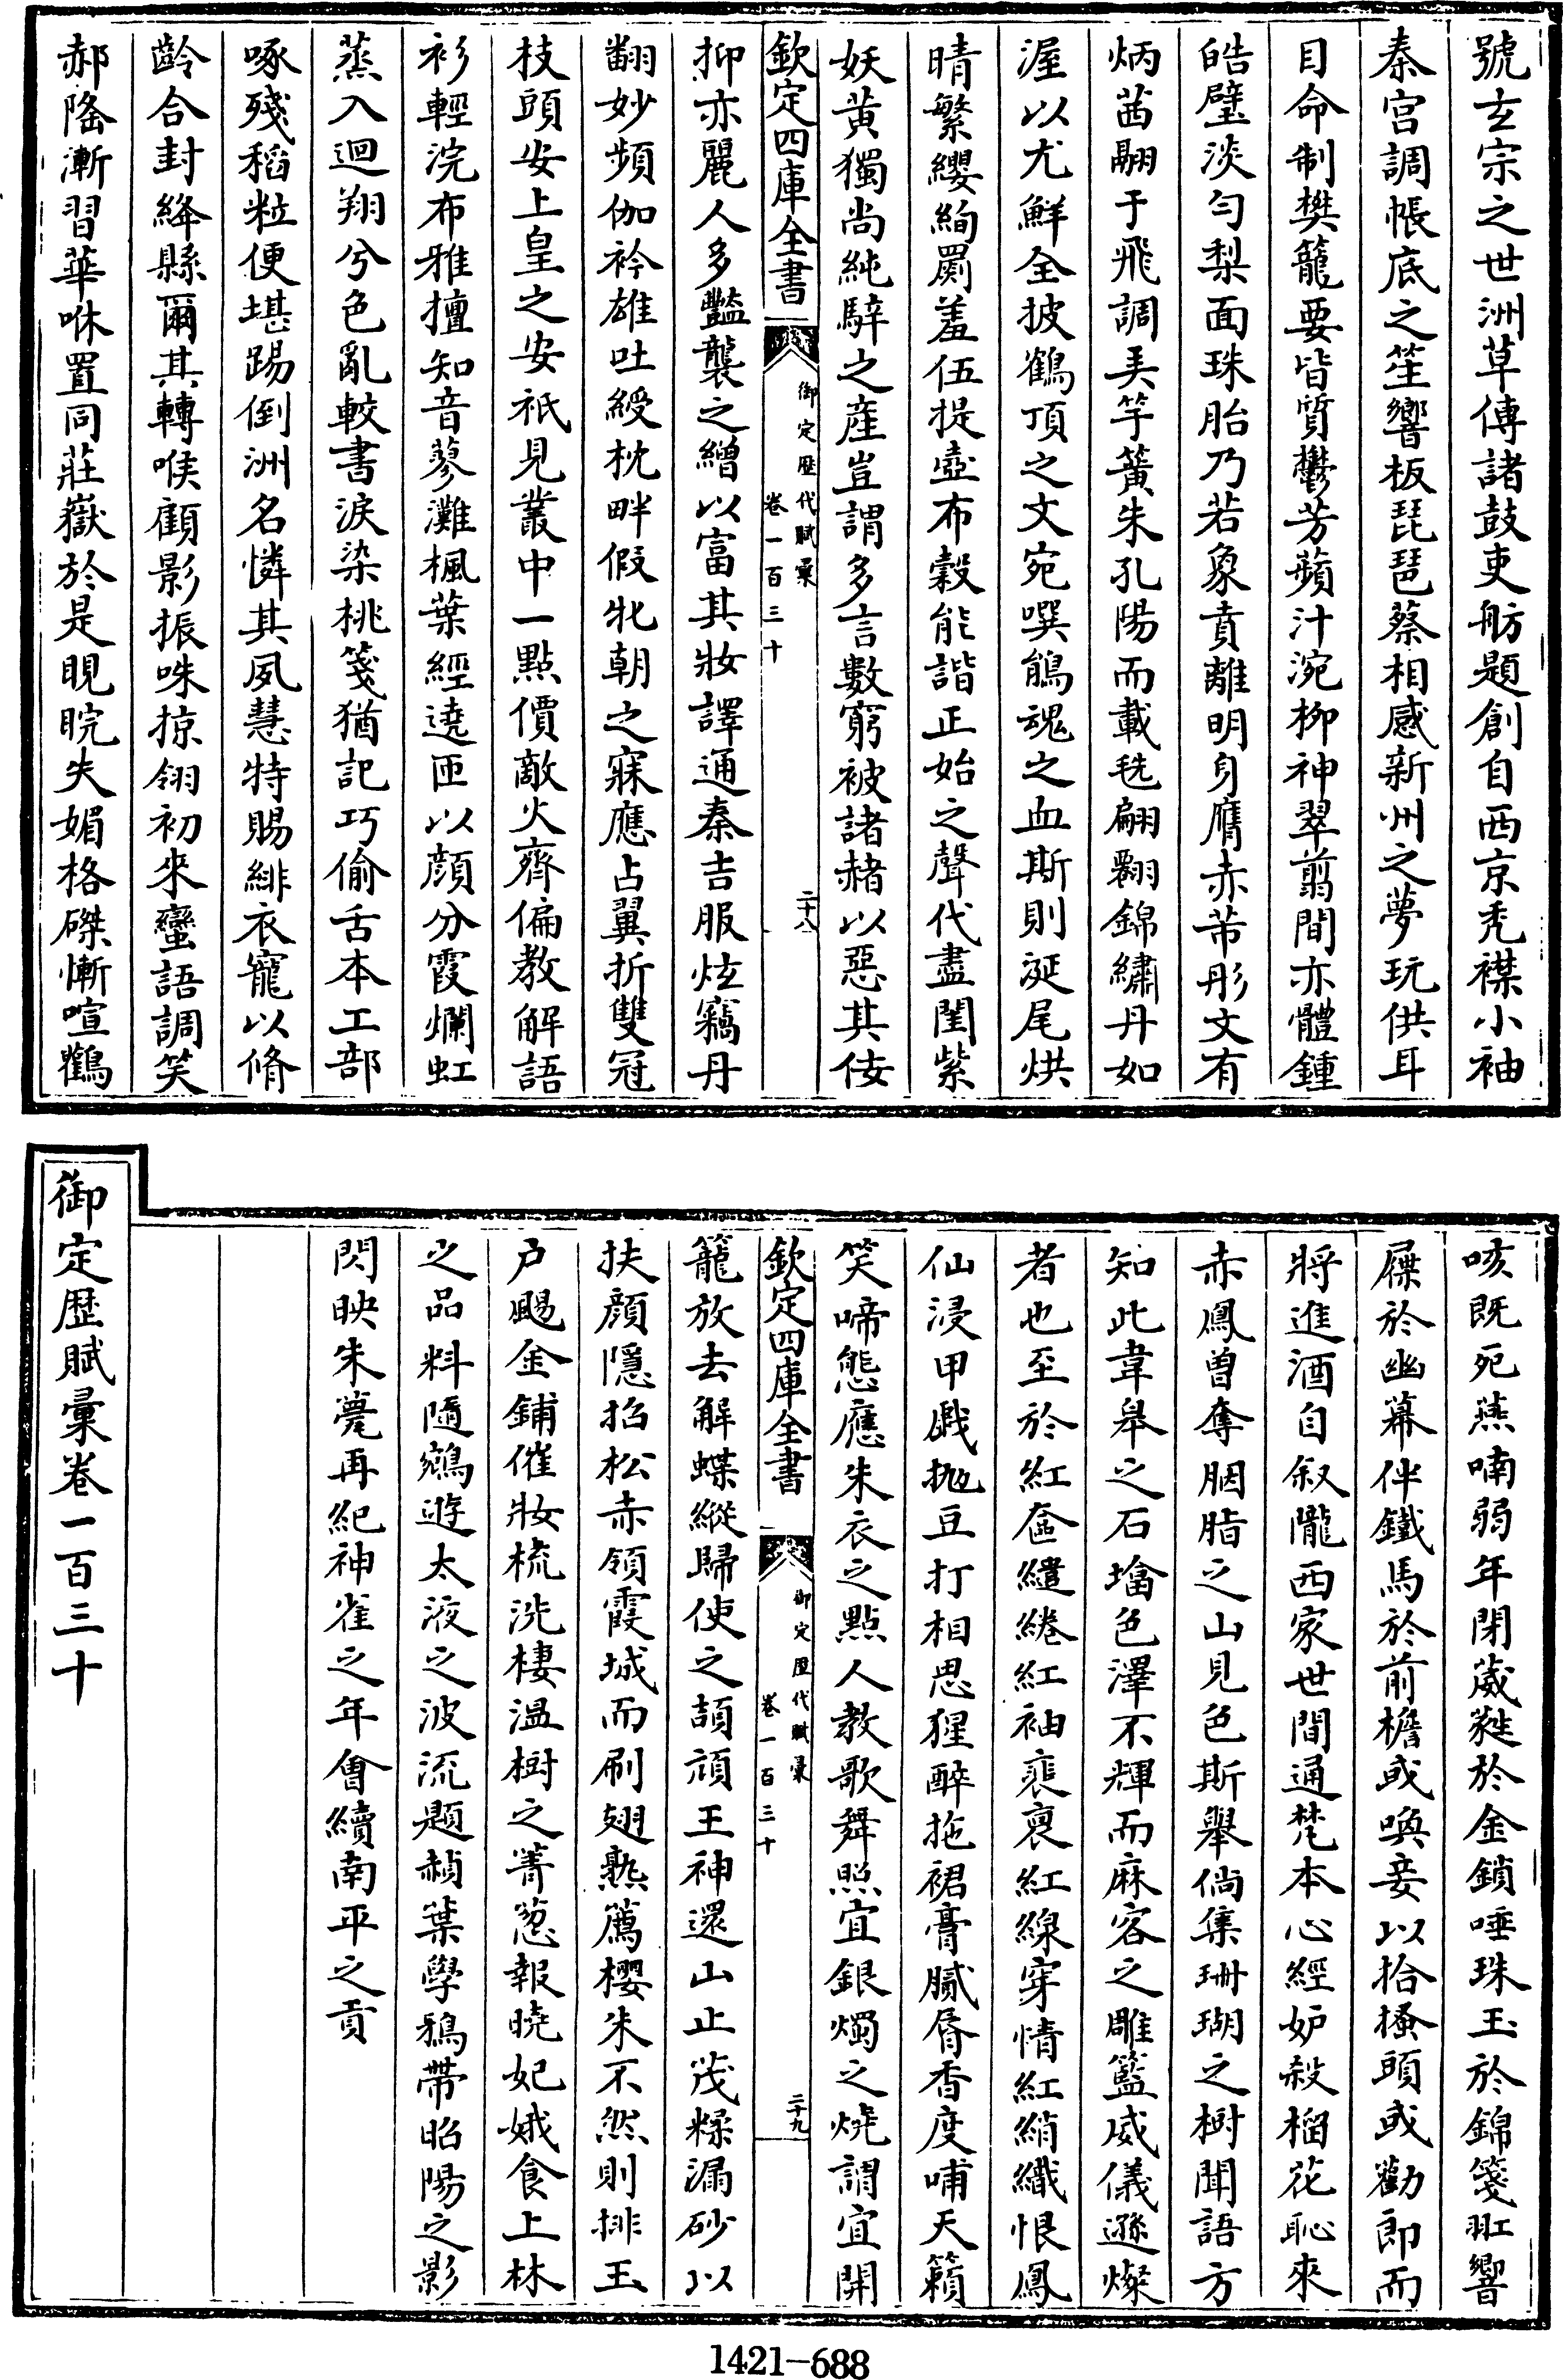 號玄宗之世洲草傳諸鼓吏舫題創自西京禿襟小袖
秦宮調帳底之笙響板琵琶蔡相感新州之夢玩供耳
目命制樊籠要皆質鬱芳蘋汁涴柳神翠翦間亦體鍾
皓璧淡勻梨面珠胎乃若象賁離明身膺赤芾彤文有
炳茜翮于飛調美竽簧朱孔陽而載毨翩翾錦繡丹如
渥以尤鮮全披鶴頂之文宛噀鵑魂之血斯則涎尾烘
晴繁纓絢罽羞伍提壺布穀能諧正始之聲代盡閨紫
妖黃獨尚純騂之產豈謂多言數窮被諸赭以惡其佞
欽定四庫全書
御定歷代賦彙
卷一百三十
二十八
抑亦麗人多豔襲之繒以富其妝譯通秦吉服炫竊丹
翻妙頻伽衿雄吐綬枕畔假牝朝之寐應占翼折雙冠
枝頭安上皇之安祇見叢中一點價敵火齊偏教解語
衫輕浣布雅擅知音蓼灘楓葉經遶匝以顔分霞爛虹
蒸入迴翔兮色亂較書淚染桃箋猶記巧偷舌本工部
啄殘稻粒便堪踢倒洲名憐其夙慧特賜緋衣寵以脩
齡合封絳縣爾其轉喉顧影振咮掠翎初來蠻語調笑
郝隆漸習華咻置同莊嶽於是睍睆失媚格磔慚喧鸛
咳既死燕喃弱年閉葳蕤於金鎖唾珠玉於錦箋䎺響
屧於幽幕伴鐵馬於前檐或喚妾以拾搔頭或勸郎而
將進酒自叙隴西家世間通梵本心經妒殺榴花恥來
赤鳳曽奪胭脂之山見色斯舉倘集珊瑚之樹聞語方
知此韋皋之石墖色澤不輝而麻客之雕籃威儀遜燦
者也至於紅奩繾綣紅袖裴裒紅線穿情紅綃織恨鳳
仙浸甲戲拋豆打相思猩醉拖裙膏膩脣香度哺天籟
笑啼態應朱衣之點人教歌舞照宜銀燭之燒謂宜開
欽定四庫全書
御定歷代賦彙
卷一百三十
二十九
籠放去解蝶縱歸使之頡頏王神還山止茂糅漏砂以
扶顔隱招松赤領霞城而刷翅熟薦櫻朱不然則排玉
户颺金鋪催妝梳洗棲溫樹之菁葱報曉妃娥食上林
之品料隨鵷遊太液之波流題赬葉學鴉帶昭陽之影
閃映朱甍再紀神雀之年會續南平之貢
御定歷賦彙卷一百三十
1421-688